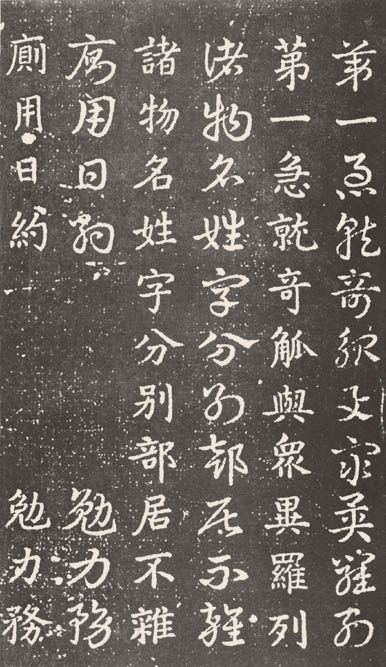 第一急就奇觚與眾異羅列
第一急就奇觚與眾異羅列
諸物名姓字分別部居不雜
諸物名姓字分別部居不雜
廁用日約 勉力務
廁用日約 勉力務